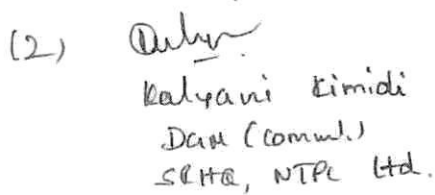 (2)
Kalyani Kimidi
DGM (comml.)
SRHQ, NTPC Ltd.